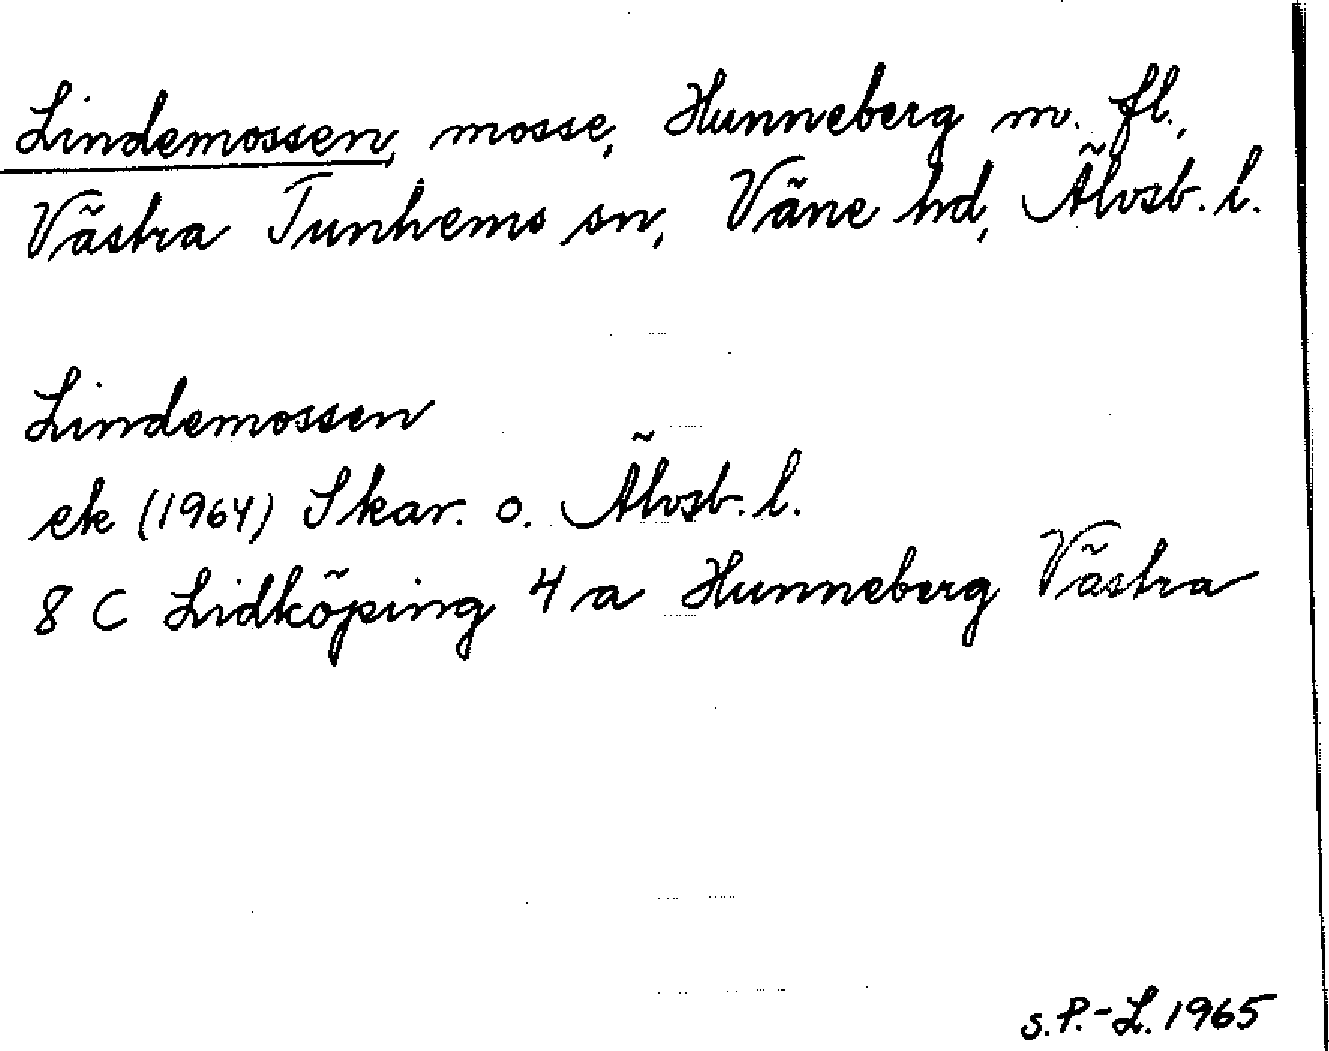 Lindemossen, mosse, Hunneberg m. fl.,
Västra Tunhems sn, Väne hd, Älvsb. l.
Lindemossen
ek (1964) Skar. o. Älvsb. l.
8 C Lidköping 4 a Hunneberg Västra
s. P.-L. 1965